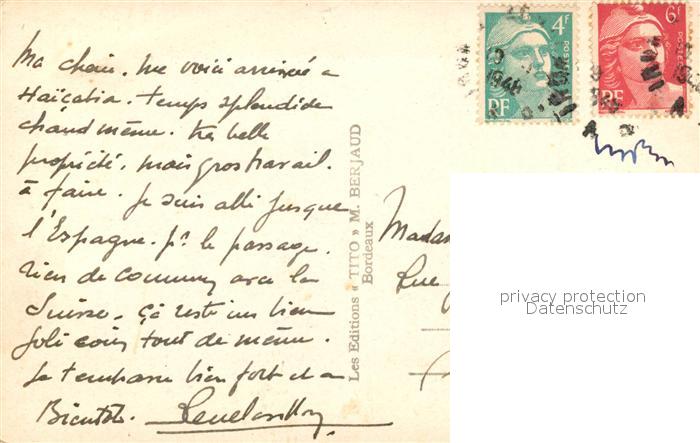 Ma chérie. me voici arrivée a
Haïçabia. temps splendide
chaud même. tres belle
propriété, mais gros travail.
à faire. Je suis allé jusque
l'Espagne. pr. le passage.
rien de commun avec la
Suisse. ça reste un bien
joli coin tout de même.
Je t'embrasse bien fort et a
Bientôt.
Les Editions « TITO » M. BERJAUD
Bordeaux
4F
POSTES
RF
6F
POSTES
RF
1948
Madam
Rue
privacy protection
Datenschutz